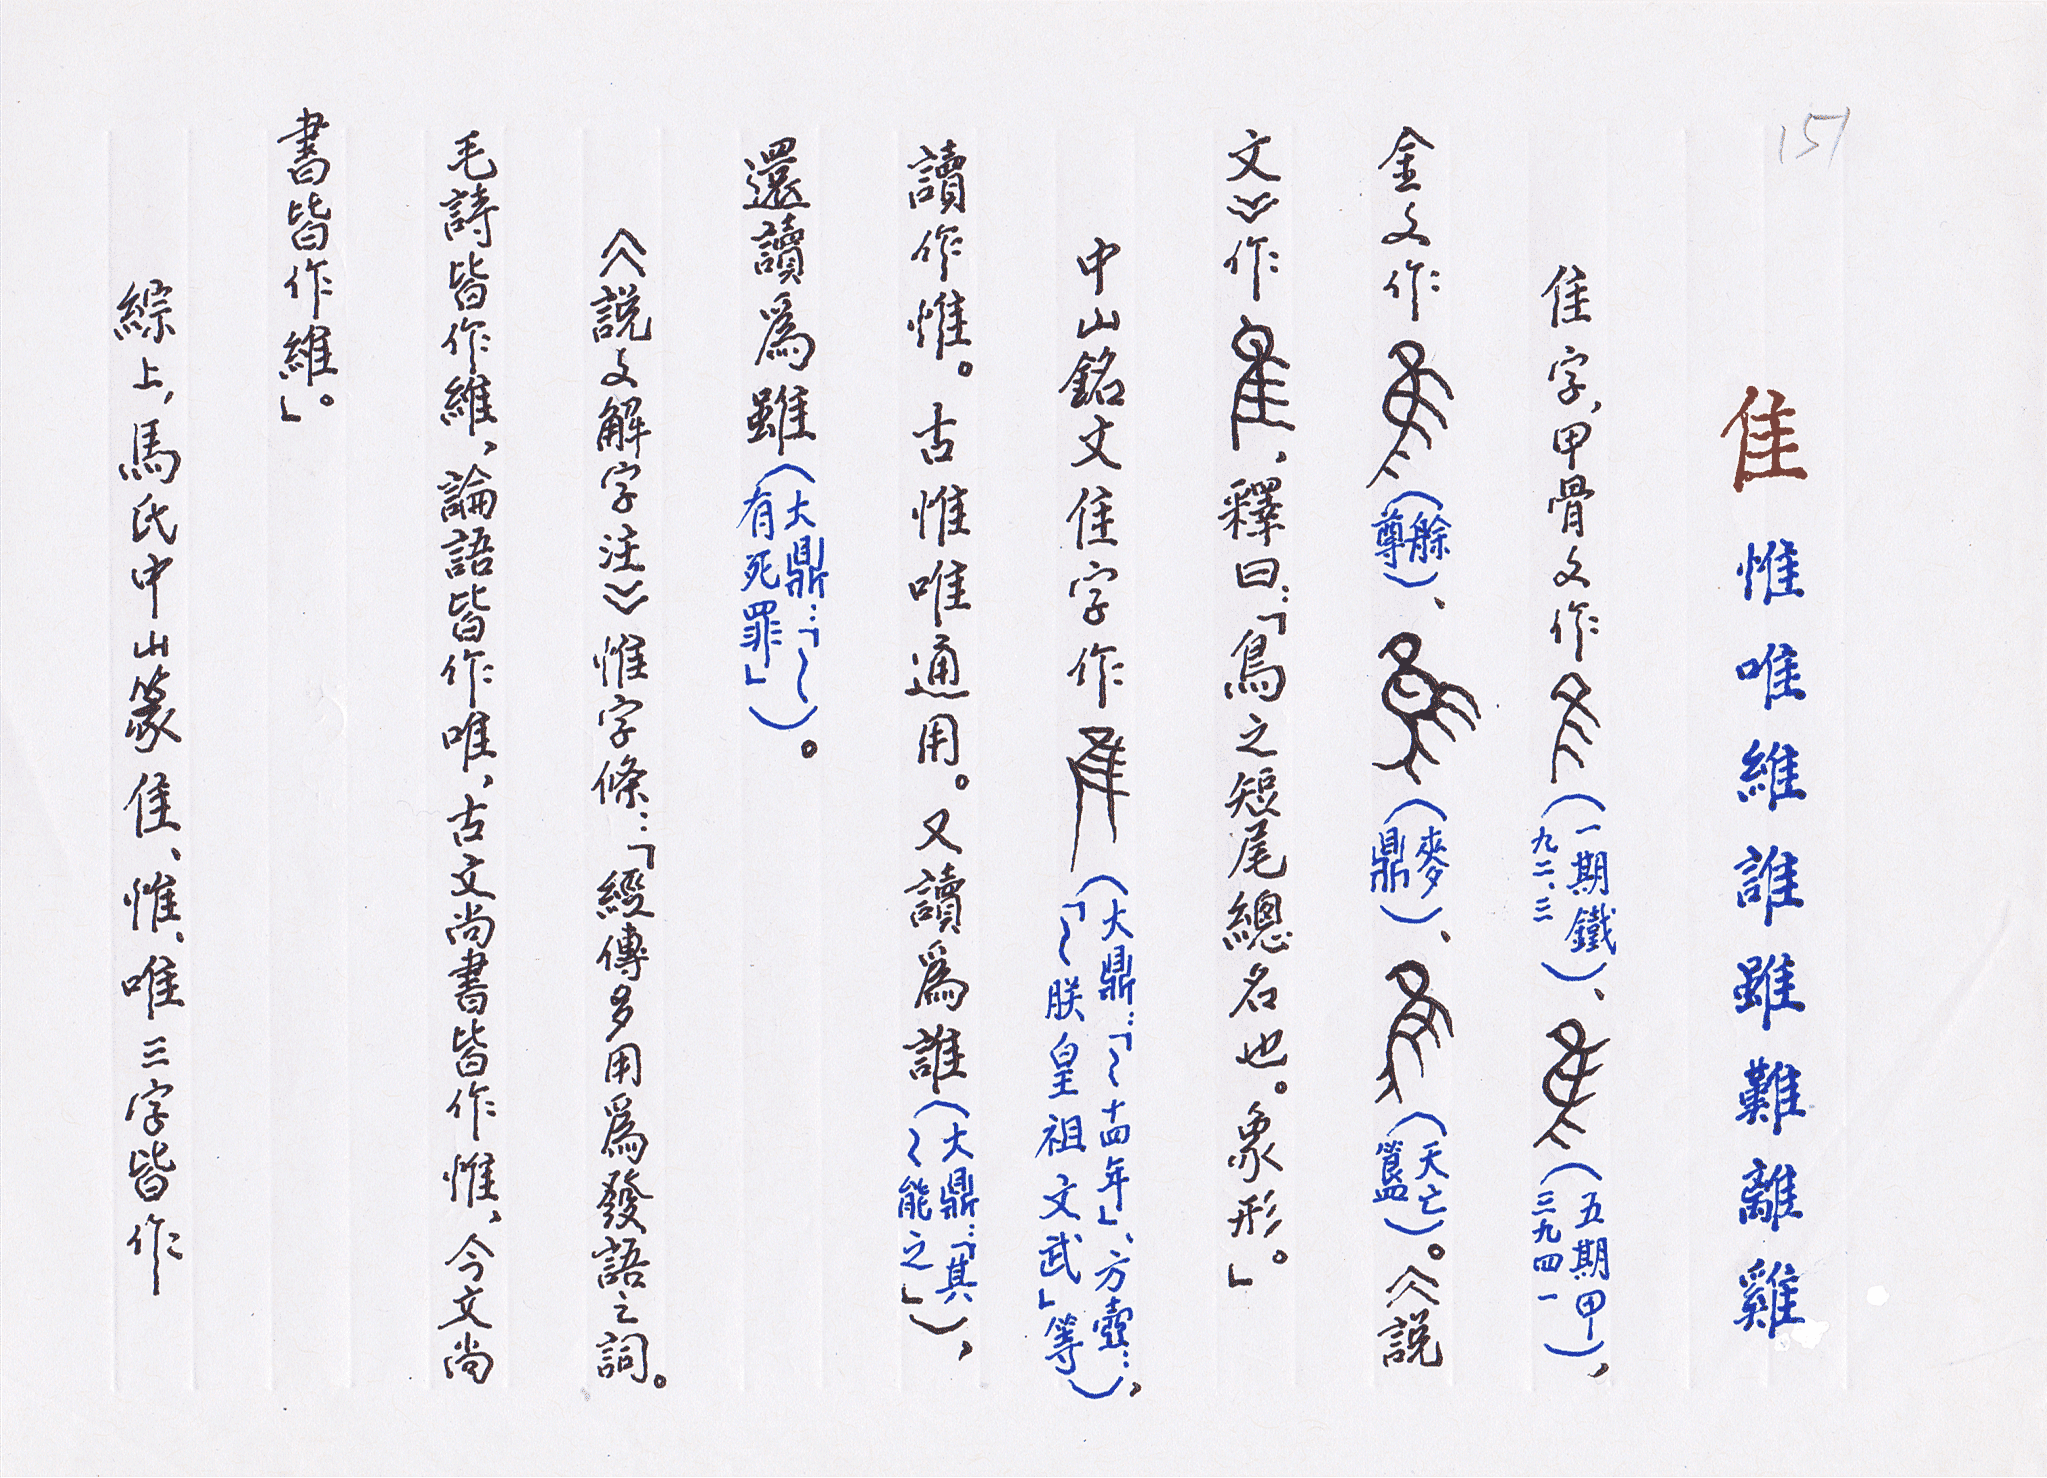 151
隹 惟唯維誰雖難離雞
隹字，甲骨文作（一期鐵九二、三）、（五期甲三九四一），
金文作（艅尊）、（麥鼎）、（天亡簋）。《說
文》作，釋曰：「鳥之短尾總名也。象形。」
中山銘文隹字作（大鼎：「～十四年」、方壺：「～朕皇祖文武」等），
讀作惟。古惟唯通用。又讀爲誰（大鼎：「其～能之」），
還讀爲雖（大鼎：「～有死罪」）。
《說文解字注》惟字條：「經傳多用爲發語之詞。
毛詩皆作維，論語皆作唯，古文尚書皆作惟，今文尚
書皆作維。」
綜上，馬氏中山篆隹、惟、唯三字皆作